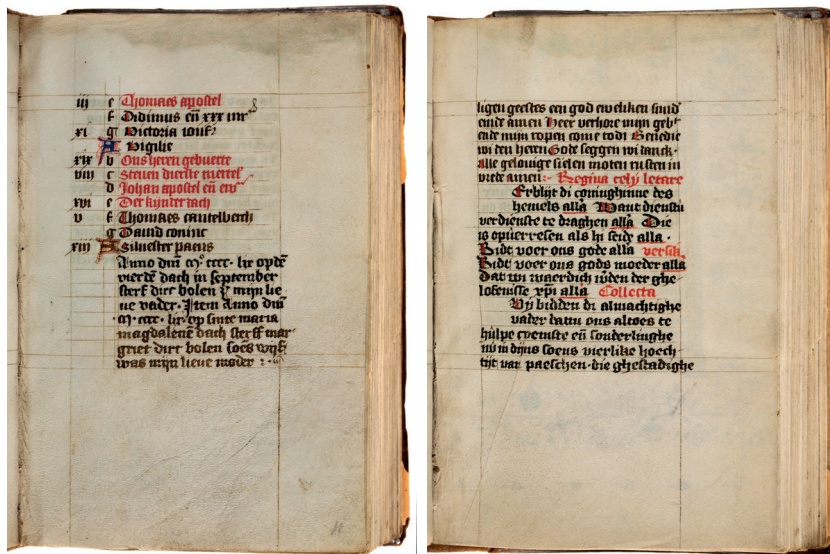 iii e Thomaes apostel
f Didimus eñ xxx mr
xi g Victoria ionf
A Vigilie
xix b Ons heren gebuerte
viii c Steuen dierste mertel
d Johan apostel eñ ew
xvi e Der kijnter dach
v f Thomaes cantelberch
g Dauid coninc
xiii A Siluester paeus
Anno dm̄ mo cccc. lix op dē
vierdē dach in september
sterf dirc bolen z mijn lie
ue vader. Item Anno dm̄
mo. cccc. lix. op sinte maria
magdalenē dach sterff mar
griet dirc bolen soēs wijf
was mijn lieue moder
ligen geestes een god eweliken sund
einde amen Heer verhore mijn geb
ende mijn ropen come to di Benedie
wi den heren Gode seggen wi danck.
Alle gelouige sielen moten rusten in
vrede amen: Regina celij letare
Erblijt di coninghinne des
hemels alla Want dienstu
verdienste te draghen alla Die
is op verresen als hi seide alla.
Bidt voer ons gode alla versik.
Bidt voer ons gods moeder alla
Dat wi waerdich wden der ghe
lofenisse xp̄i alla Collecta
Wij bidden di almachtighe
vader dattu ons altoes te
hulpe coemste eñ sonderlinghe
nu in dijns soens vierlike hoech
tijt van paeschen. die ghestadighe